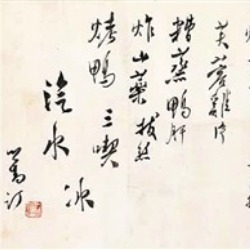 芙蓉雞片
糟蒸鴨肝
炸山藥 拔絲
烤鴨 三喫
汽水 冰